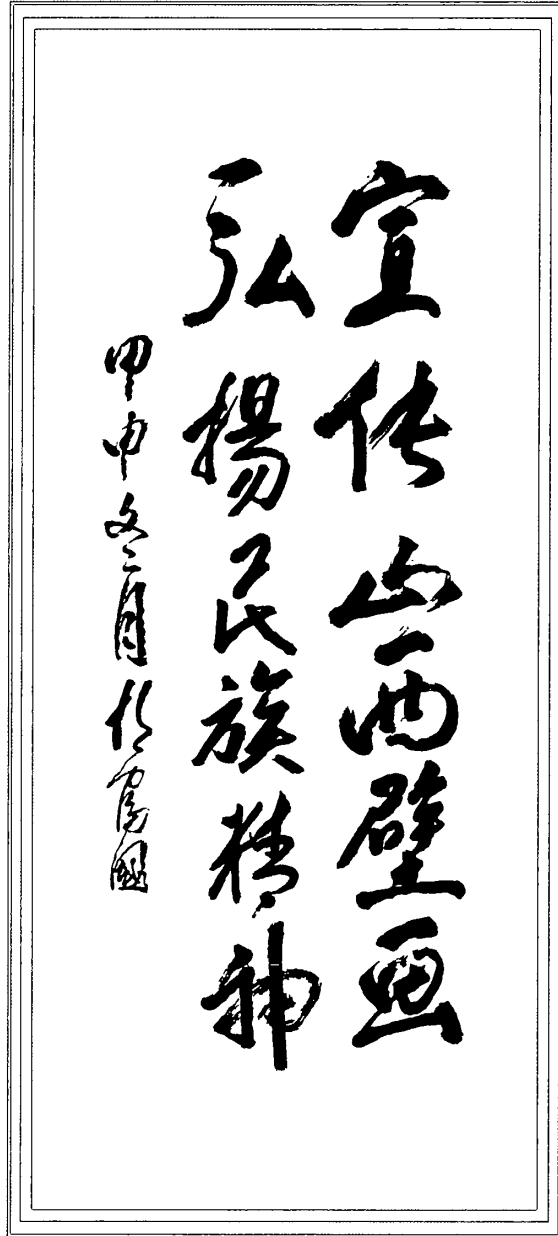 宣传山西壁画
弘扬民族精神
甲申冬二月